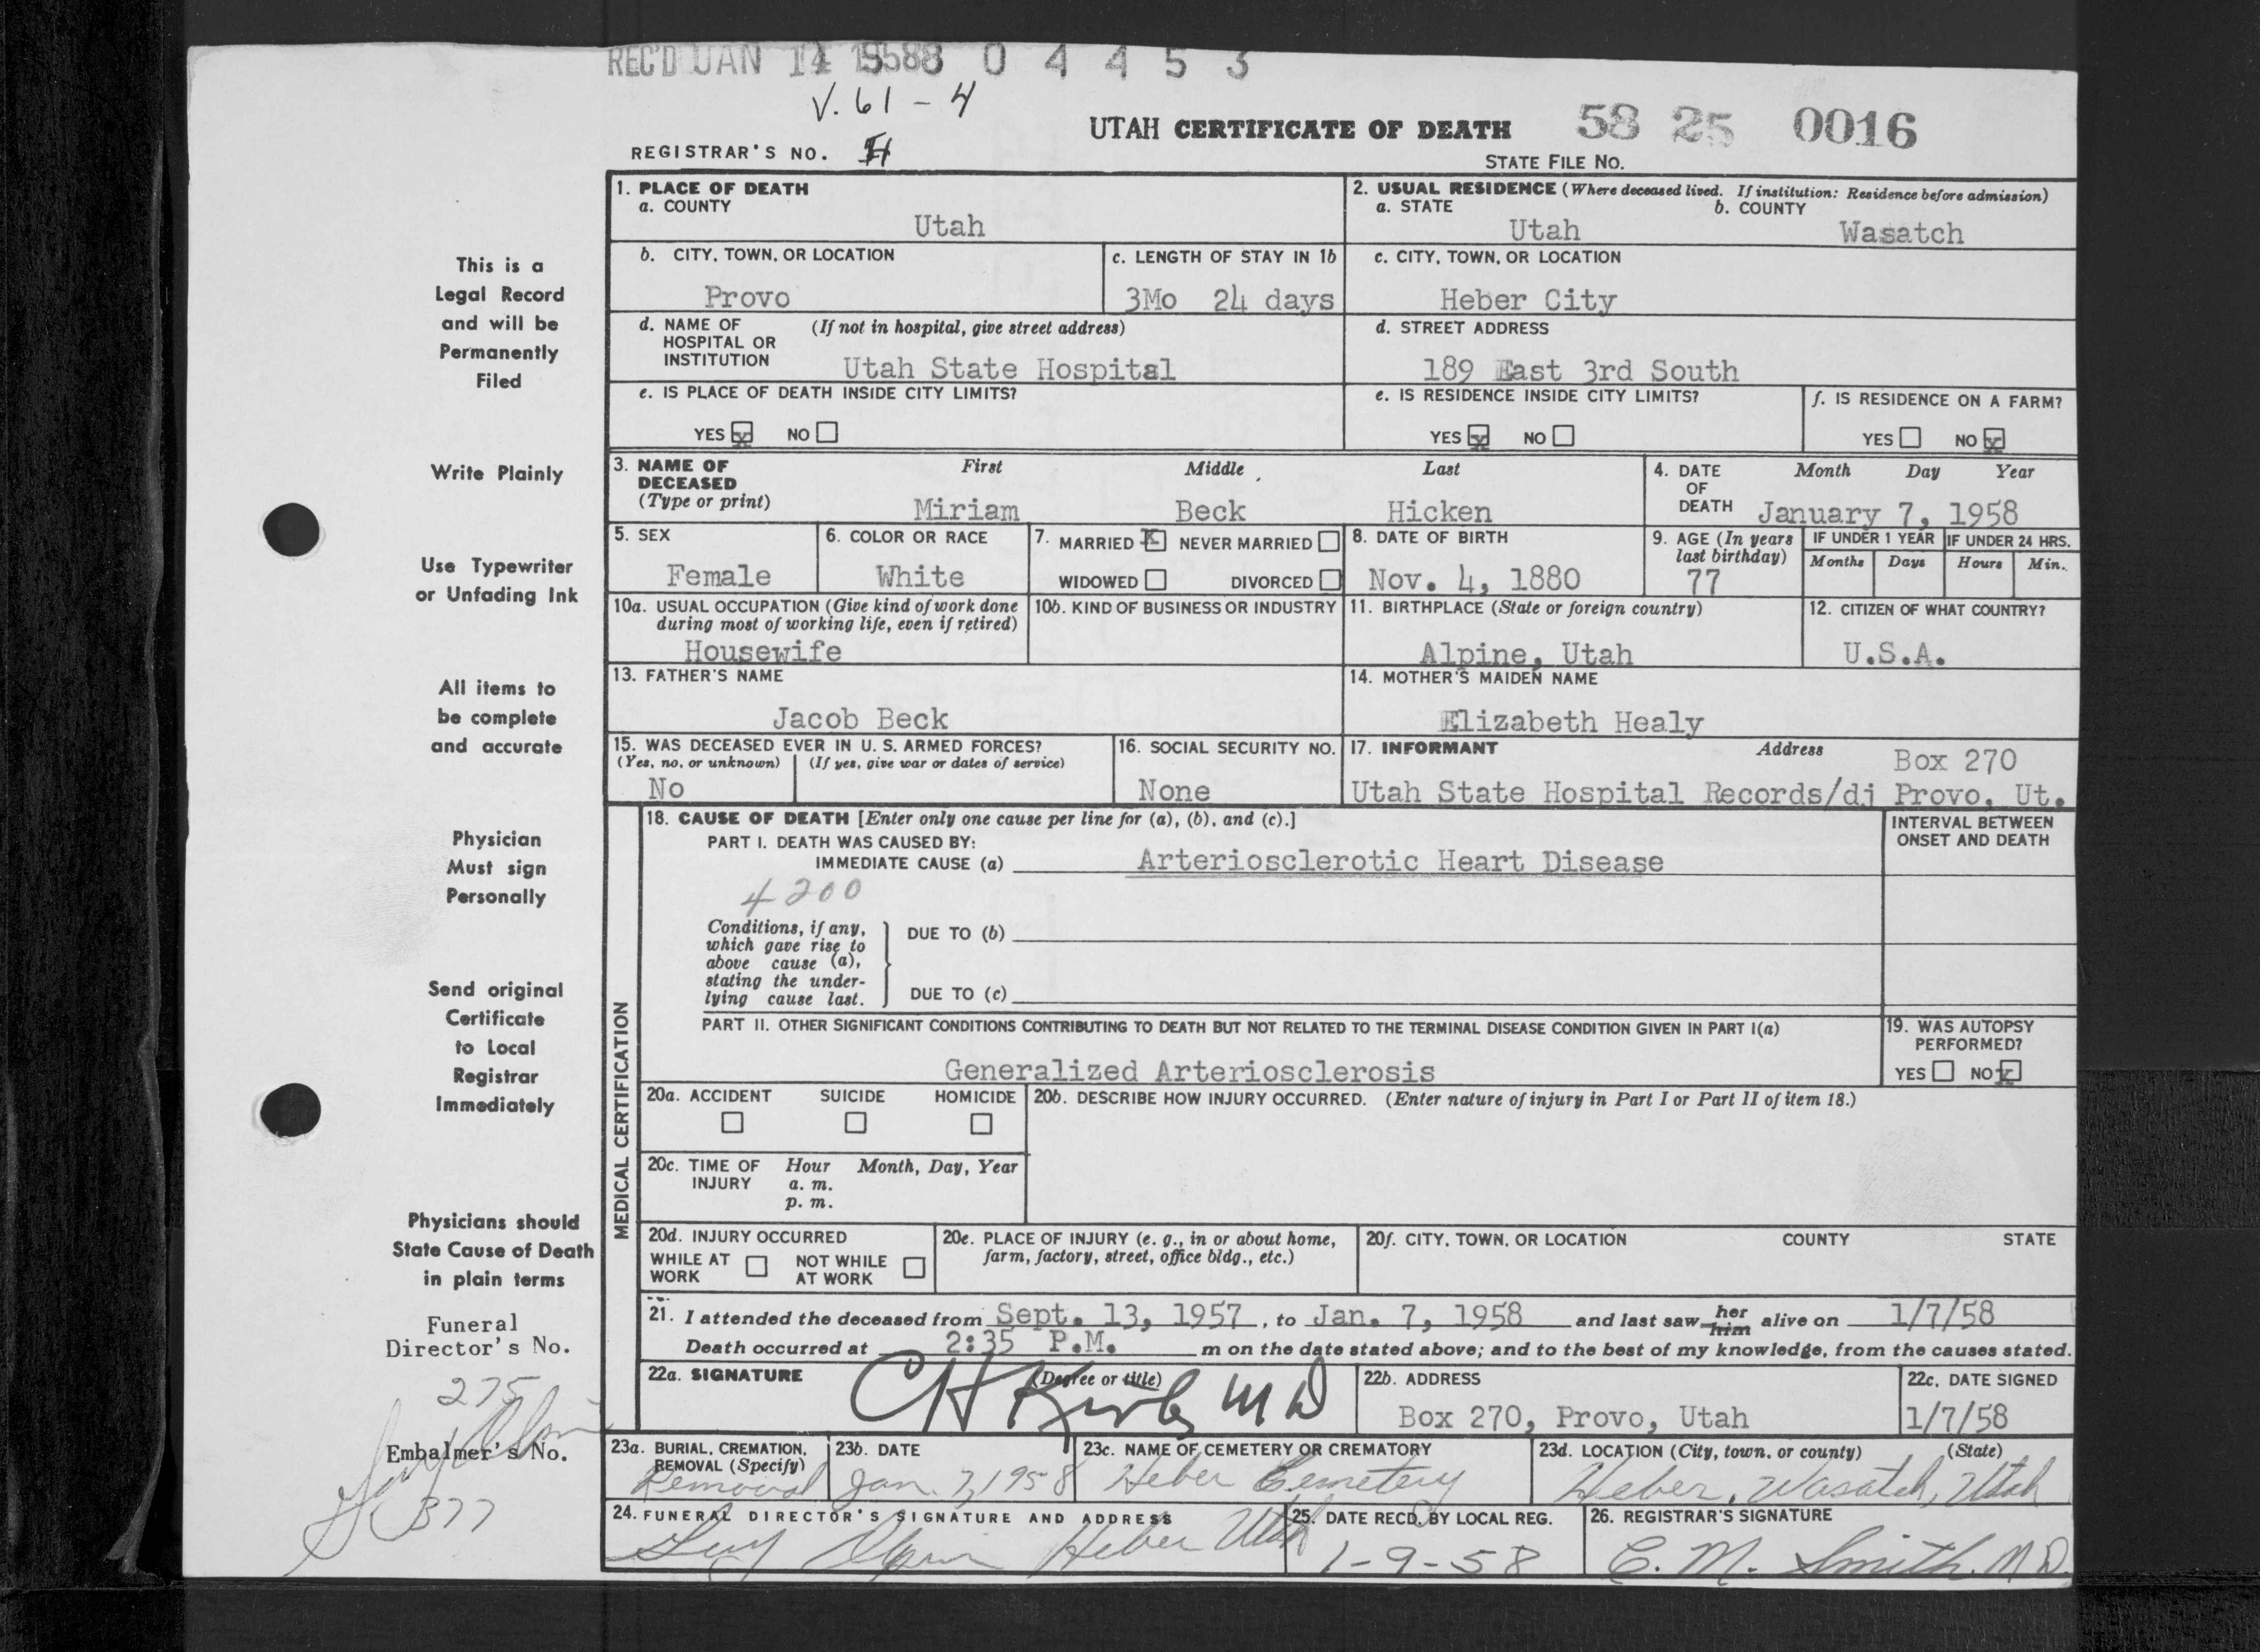 REC'D JAN 14 1958 0 4 4 5 3
V. 61 - 4
UTAH CERTIFICATE OF DEATH 58 25 0016
REGISTRAR'S NO.
STATE FILE NO.
This is a
Legal Record
and will be
Permanently
Filed
Write Plainly
Use Typewriter
or Unfading Ink
All items to
be complete
and accurate
Physician
Must sign
Personally
Send original
Certificate
to Local
Registrar
Immediately
Physicians should
State Cause of Death
in plain terms
Funeral
Director's No.
275
Embalmer's No.
377
1. PLACE OF DEATH
a. COUNTY
Utah
2. USUAL RESIDENCE (Where deceased lived. If institution: Residence before admission)
a. STATE b. COUNTY
Utah Wasatch
b. CITY, TOWN, OR LOCATION
Provo
c. LENGTH OF STAY IN 1b
3Mo 24 days
c. CITY, TOWN, OR LOCATION
Heber City
d. NAME OF (If not in hospital, give street address)
HOSPITAL OR
INSTITUTION Utah State Hospital
d. STREET ADDRESS
189 East 3rd South
e. IS PLACE OF DEATH INSIDE CITY LIMITS?
YES x NO
e. IS RESIDENCE INSIDE CITY LIMITS?
YES x NO
f. IS RESIDENCE ON A FARM?
YES NO x
3. NAME OF First Middle Last
DECEASED
(Type or print) Miriam Beck Hicken
4. DATE Month Day Year
OF
DEATH January 7, 1958
5. SEX
Female
6. COLOR OR RACE
White
7. MARRIED x NEVER MARRIED
WIDOWED DIVORCED
8. DATE OF BIRTH
Nov. 4, 1880
9. AGE (In years
last birthday)
77
IF UNDER 1 YEAR
Months Days
IF UNDER 24 HRS.
Hours Min.
10a. USUAL OCCUPATION (Give kind of work done
during most of working life, even if retired)
Housewife
10b. KIND OF BUSINESS OR INDUSTRY
11. BIRTHPLACE (State or foreign country)
Alpine, Utah
12. CITIZEN OF WHAT COUNTRY?
U.S.A.
13. FATHER'S NAME
Jacob Beck
14. MOTHER'S MAIDEN NAME
Elizabeth Healy
15. WAS DECEASED EVER IN U. S. ARMED FORCES?
(Yes, no, or unknown) (If yes, give war or dates of service)
No
16. SOCIAL SECURITY NO.
None
17. INFORMANT Address Box 270
Utah State Hospital Records/dj Provo, Ut.
MEDICAL CERTIFICATION
18. CAUSE OF DEATH [Enter only one cause per line for (a), (b), and (c).]
PART I. DEATH WAS CAUSED BY:
IMMEDIATE CAUSE (a) Arteriosclerotic Heart Disease
4200
INTERVAL BETWEEN
ONSET AND DEATH
Conditions, if any,
which gave rise to
above cause (a),
stating the under-
lying cause last.
DUE TO (b)
DUE TO (c)
PART II. OTHER SIGNIFICANT CONDITIONS CONTRIBUTING TO DEATH BUT NOT RELATED TO THE TERMINAL DISEASE CONDITION GIVEN IN PART I(a)
Generalized Arteriosclerosis
19. WAS AUTOPSY
PERFORMED?
YES NO x
20a. ACCIDENT SUICIDE HOMICIDE
20b. DESCRIBE HOW INJURY OCCURRED. (Enter nature of injury in Part I or Part II of item 18.)
20c. TIME OF Hour Month, Day, Year
INJURY a. m.
p. m.
20d. INJURY OCCURRED
WHILE AT NOT WHILE
WORK AT WORK
20e. PLACE OF INJURY (e. g., in or about home,
farm, factory, street, office bldg., etc.)
20f. CITY, TOWN, OR LOCATION COUNTY STATE
21. I attended the deceased from Sept. 13, 1957, to Jan. 7, 1958 and last saw her him alive on 1/7/58
Death occurred at 2:35 P.M. m on the date stated above; and to the best of my knowledge, from the causes stated.
22a. SIGNATURE (Degree or title)
CH Kirby M D
22b. ADDRESS
Box 270, Provo, Utah
22c. DATE SIGNED
1/7/58
23a. BURIAL, CREMATION,
REMOVAL (Specify)
Removal
23b. DATE
Jan. 7, 1958
23c. NAME OF CEMETERY OR CREMATORY
Heber Cemetery
23d. LOCATION (City, town, or county) (State)
Heber, Wasatch, Utah
24. FUNERAL DIRECTOR'S SIGNATURE AND ADDRESS
Heber Utah
25. DATE RECD. BY LOCAL REG.
1-9-58
26. REGISTRAR'S SIGNATURE
C. M. Smith, M D.